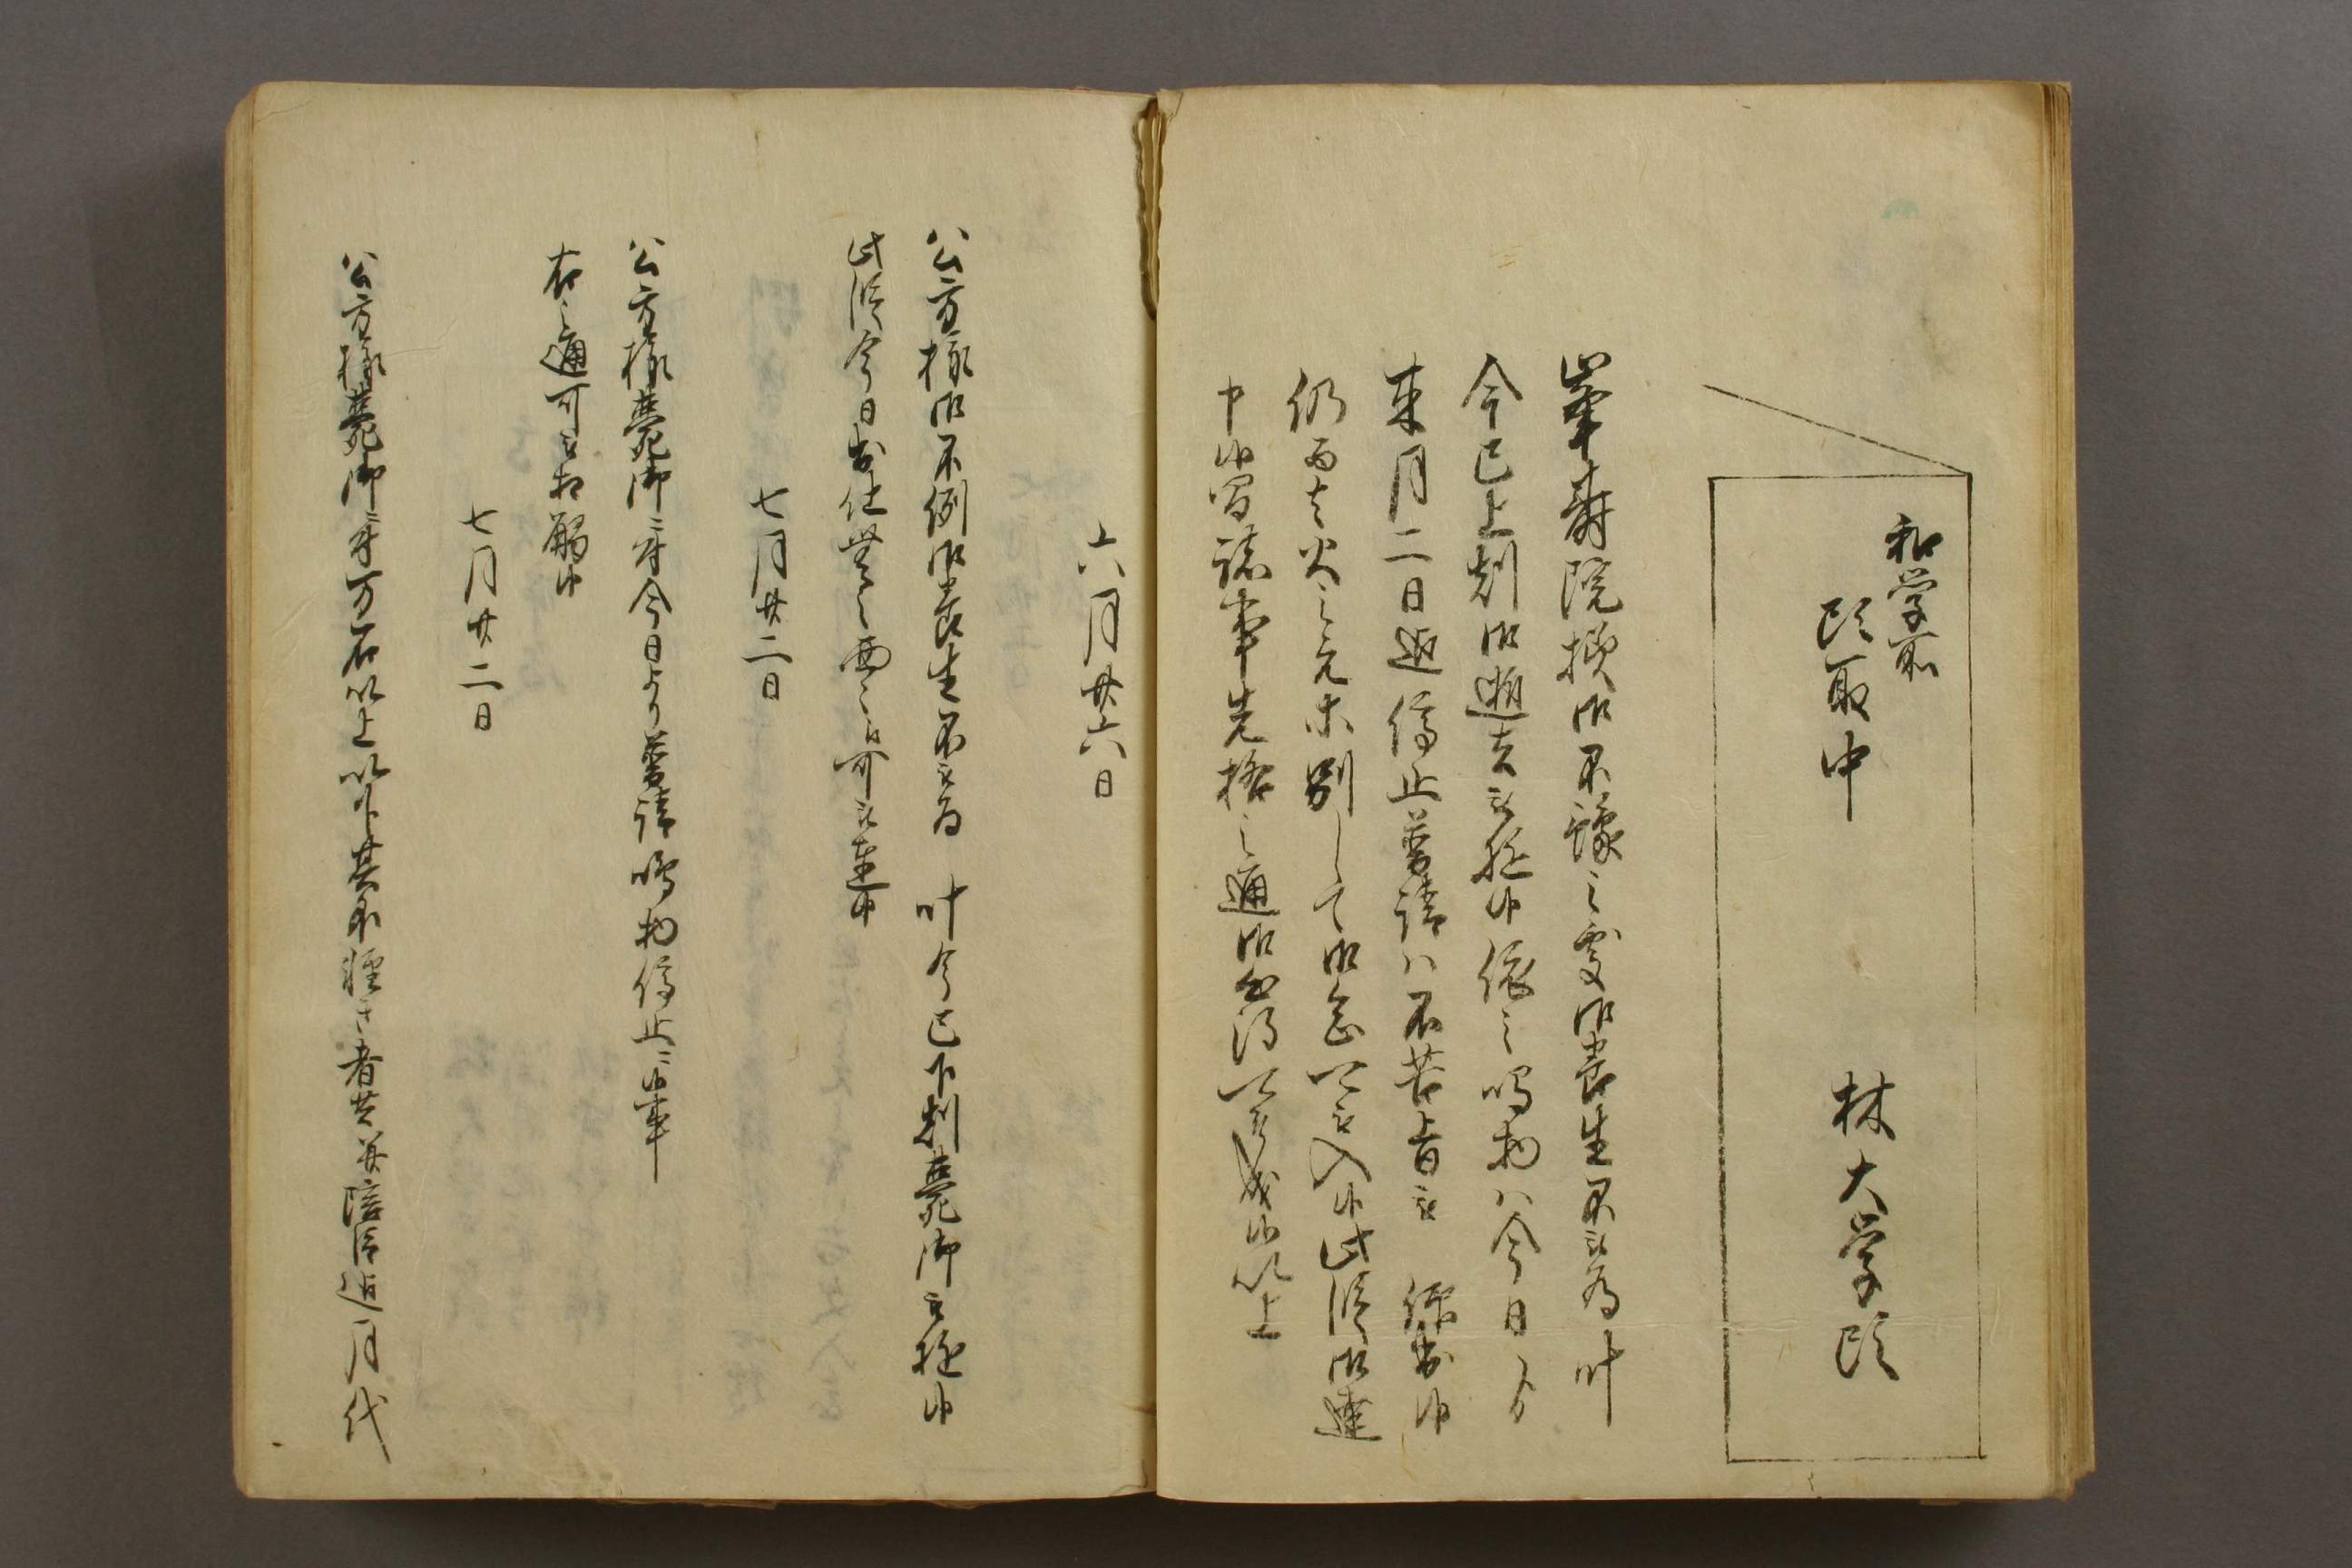 和学所
頭取中
林大学頭
峯寿院様御不豫之處御養生不被為叶
今巳上刻御逝去被遊候依之鳴物ハ今日ゟ
来月二日迄停止普請ハ不苦旨被 仰出候
仍而者火之元等別して御念可被入候此段御達
申候尤諸事先格之通御心得可有之候以上
六月廿六日
公方様御不例御養生不被為 叶今巳下刻薨御被遊候
此段今日出仕無之面々江可被達候
七月廿二日
公方様薨御ニ付今日より普請鳴物停止ニ候事
右之通可被相触候
七月廿二日
公方様薨御ニ付万石以上以下共不軽者共并陪臣迄月代